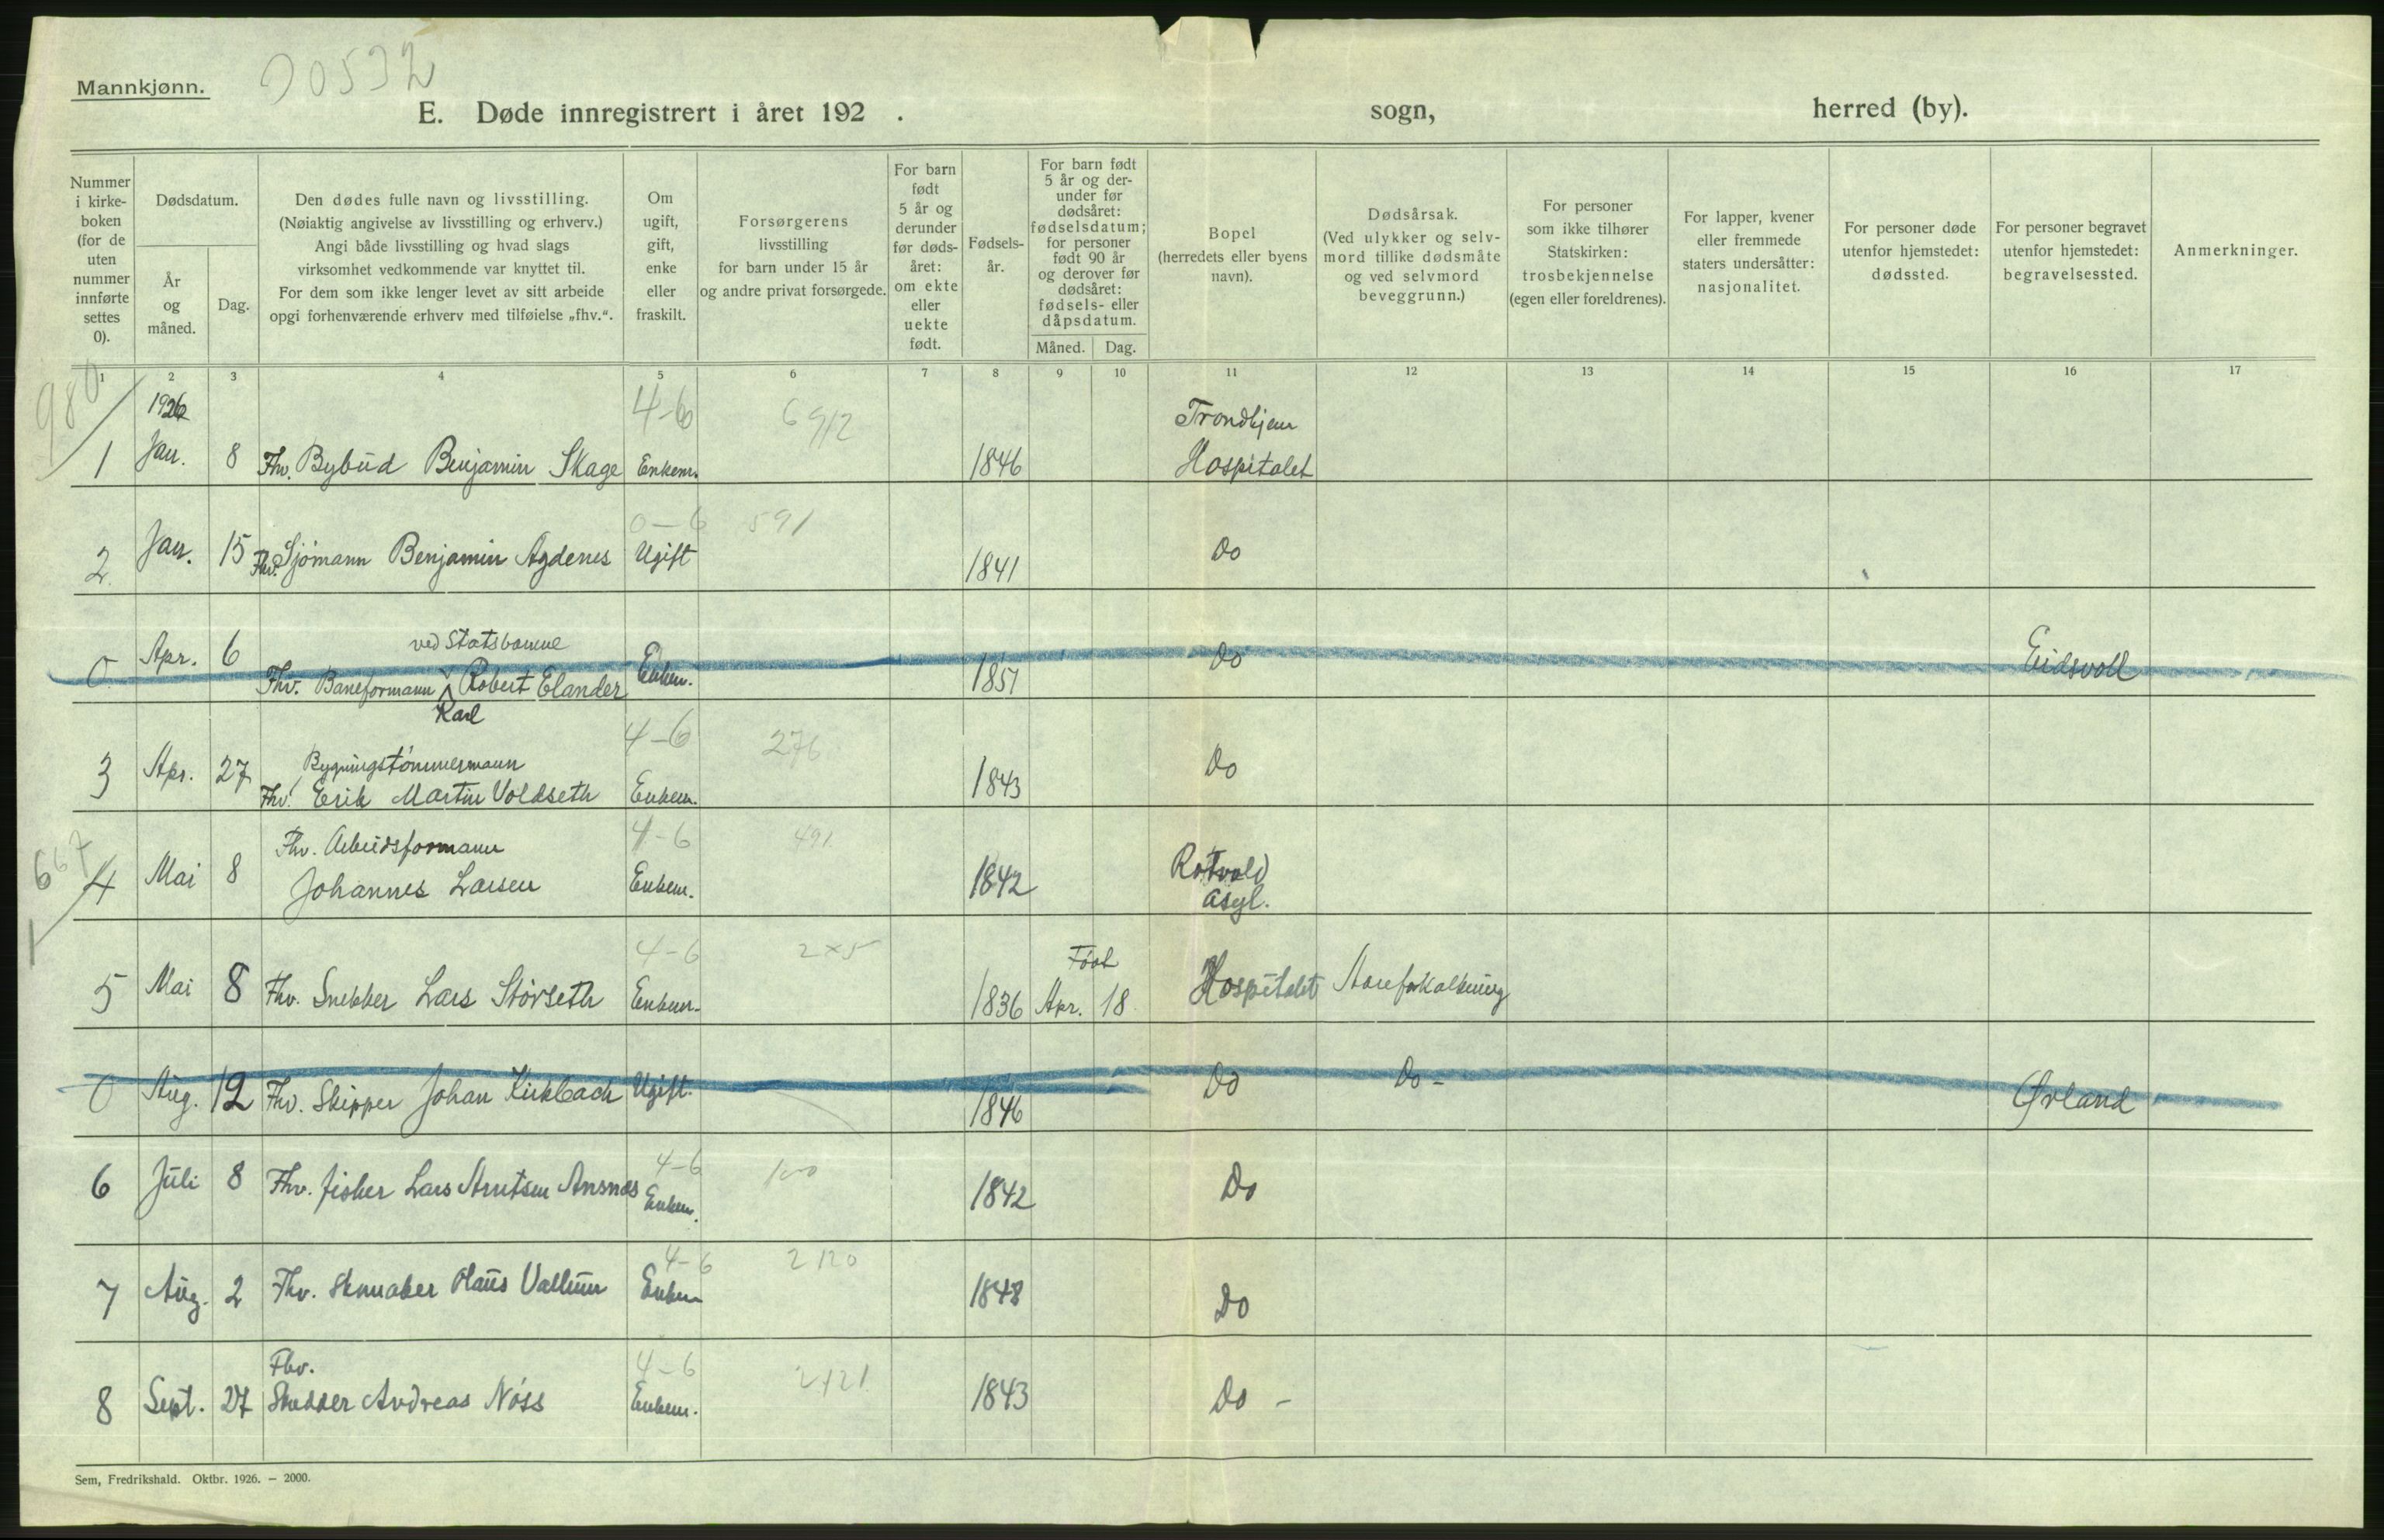 Mannkjønn.
E. Døde innregistrert i året 192 . sogn, herred (by).
Nummer i kirke-boken (for de uten nummer innførte settes 0).
Dødsdatum.
År og måned.
Dag.
Den dødes fulle navn og livsstilling.
(Nøiaktig angivelse av livsstilling og erhverv.)
Angi både livsstilling og hvad slags
virksomhet vedkommende var knyttet til.
For dem som ikke lenger levet av sitt arbeide
opgi forhenværende erhverv med tilføielse „fhv.“.
Om ugift, gift, enke eller fraskilt.
Forsørgerens
livsstilling
for barn under 15 år
og andre privat forsørgede.
For barn født 5 år og derunder før døds-året: om ekte eller uekte født.
Fødsels-år.
For barn født 5 år og der-under før dødsåret: fødselsdatum; for personer født 90 år og derover før dødsåret: fødsels- eller dåpsdatum.
Måned. Dag.
Bopel
(herredets eller byens
navn).
Dødsårsak.
(Ved ulykker og selv-
mord tillike dødsmåte
og ved selvmord
beveggrunn.)
For personer
som ikke tilhører
Statskirken:
trosbekjennelse
(egen eller foreldrenes).
For lapper, kvener
eller fremmede
staters undersåtter:
nasjonalitet.
For personer døde
utenfor hjemstedet:
dødssted.
For personer begravet
utenfor hjemstedet:
begravelsessted.
Anmerkninger.
1 2 3 4 5 6 7 8 9 10 11 12 13 14 15 16 17
980
1926 4-6 Trondhjem
1 Jan. 8 Fhv. Bybud Benjamin Skage Enkem. 1846 Hospitalet
0-6 591
2 Jan. 15 Fhv. Sjømann Benjamin Agdenes Ugift 1841 Do
ved Statsbanene
0 Apr. 6 Fhv. Baneformann Robert Elander Enkem. 1851 Do Eidsvoll
Karl
4-6 276
Bygningstømmermann
3 Apr. 27 Fhv. Erik Martin Voldseth Enkem. 1843 Do
667
4-6 491
Fhv. Arbeidsformann
4 Mai 8 Johannes Larsen Enkem. 1842 Rotvold asyl.
4-6 2x5 Født
5 Mai 8 Fhv. Snekker Lars Störseth Enkem. 1836 Apr. 18 Hospitalet Aareforkalkning
0 Aug. 12 Fhv. Skipper Johan Kirkbach Ugift. 1846 Do Do - Ørland
4-6
6 Juli 8 Fhv. fisker Lars Arntsen Ansnes Enkem. 1842 Do
4-6 2120
7 Aug. 2 Fhv. Skomaker Olaus Vallum Enkem 1848 Do
Fhv. 4-6 2121
8 Sept. 27 Skredder Andreas Nöss Enkem. 1843 Do -
Sem, Fredrikshald. Oktbr. 1926. — 2000.